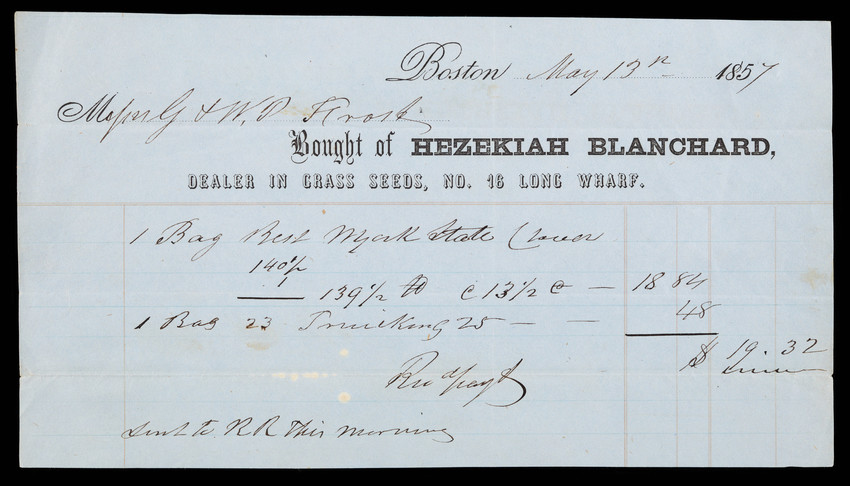 Boston May 13th 1857
Messrs G & W. P. Frost
Bought of HEZEKIAH BLANCHARD,
DEALER IN GRASS SEEDS, NO. 16 LONG WHARF.
1 Bag Best N York State Clover
140 1/2
1
139 1/2 lb @ 13 1/2 c — 18 84
1 Bag 23 Trucking 25 — — 48
$ 19. 32
Recd payt
Sent to RR This morning